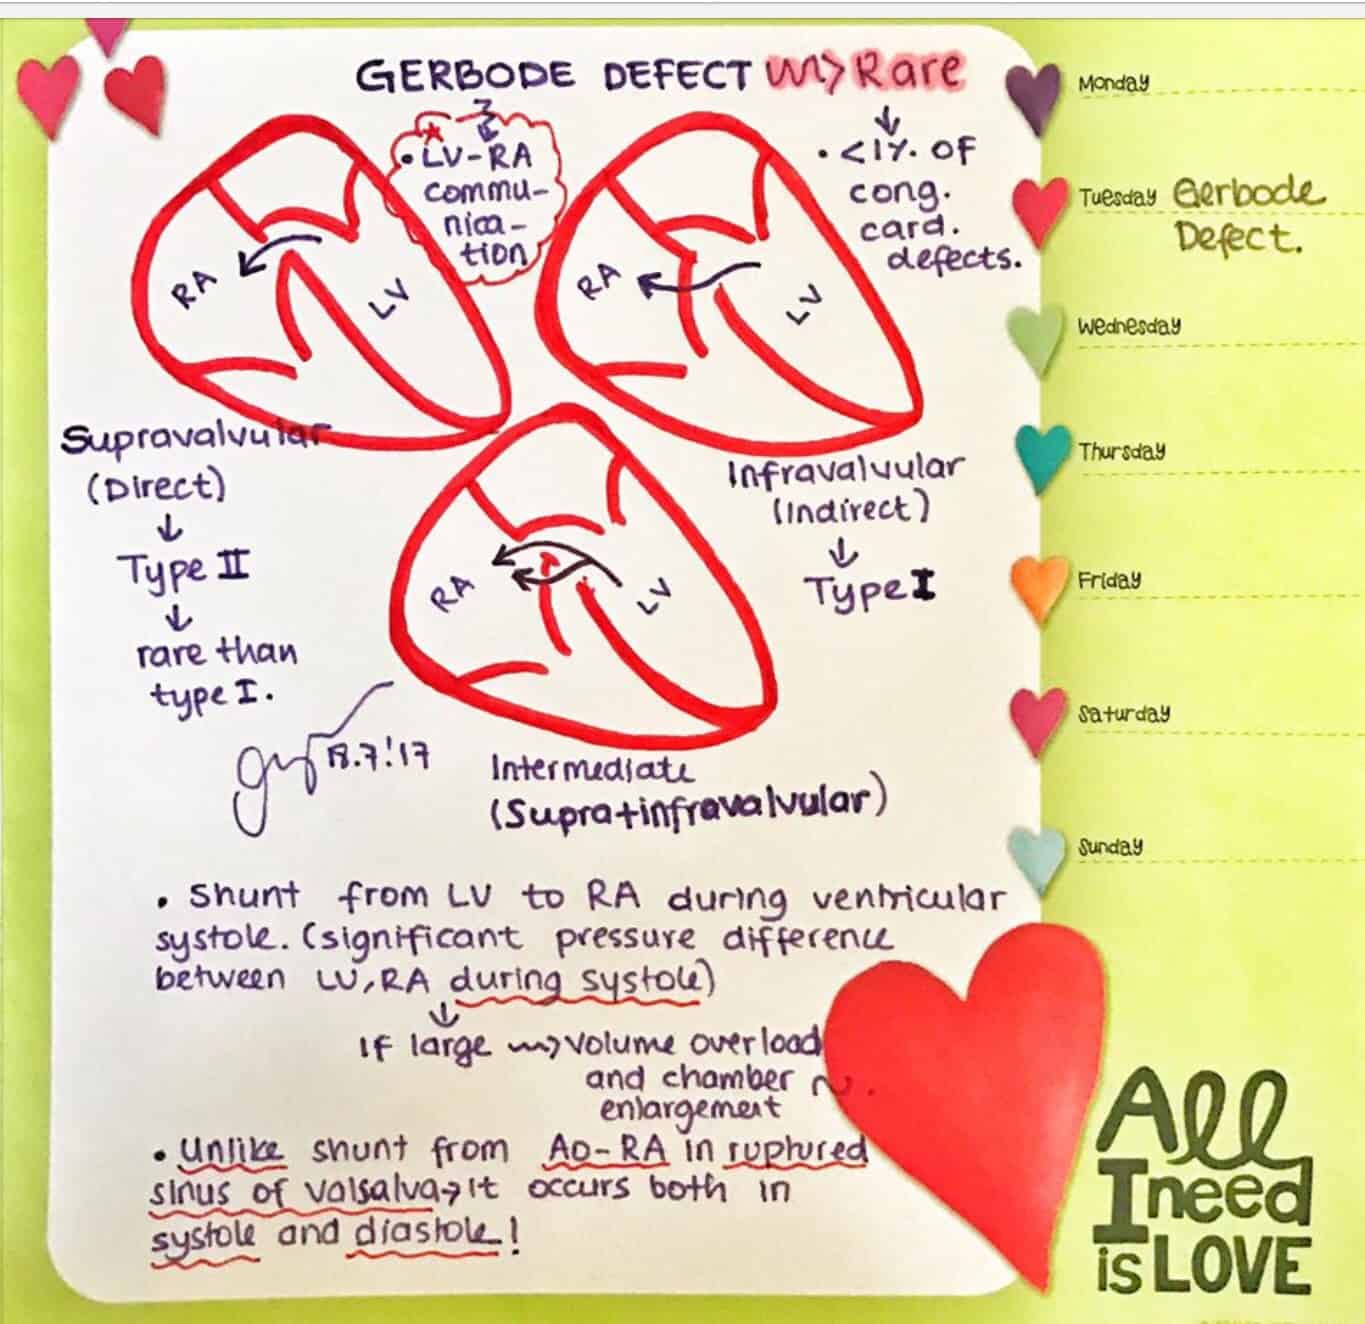 GERBODE DEFECT ⇝ Rare
• LV-RA
commu-
nica-
tion
↓
• <1% of
cong.
card.
defects.
RA
LV
RA
LV
Supravalvular
(Direct)
↓
Type II
↓
rare than
type I.
Infravalvular
(Indirect)
↓
Type I
RA
LV
18.7.'17
Intermediate
(Supra+infravalvular)
• Shunt from LV to RA during ventricular
systole. (significant pressure difference
between LV,RA during systole)
↓
If large ⇝ volume overload
and chamber
enlargement
• Unlike shunt from Ao-RA in ruptured
sinus of valsalva→it occurs both in
systole and diastole!
Monday
Tuesday Gerbode
Defect.
Wednesday
Thursday
Friday
Saturday
Sunday
All
I need
is LOVE